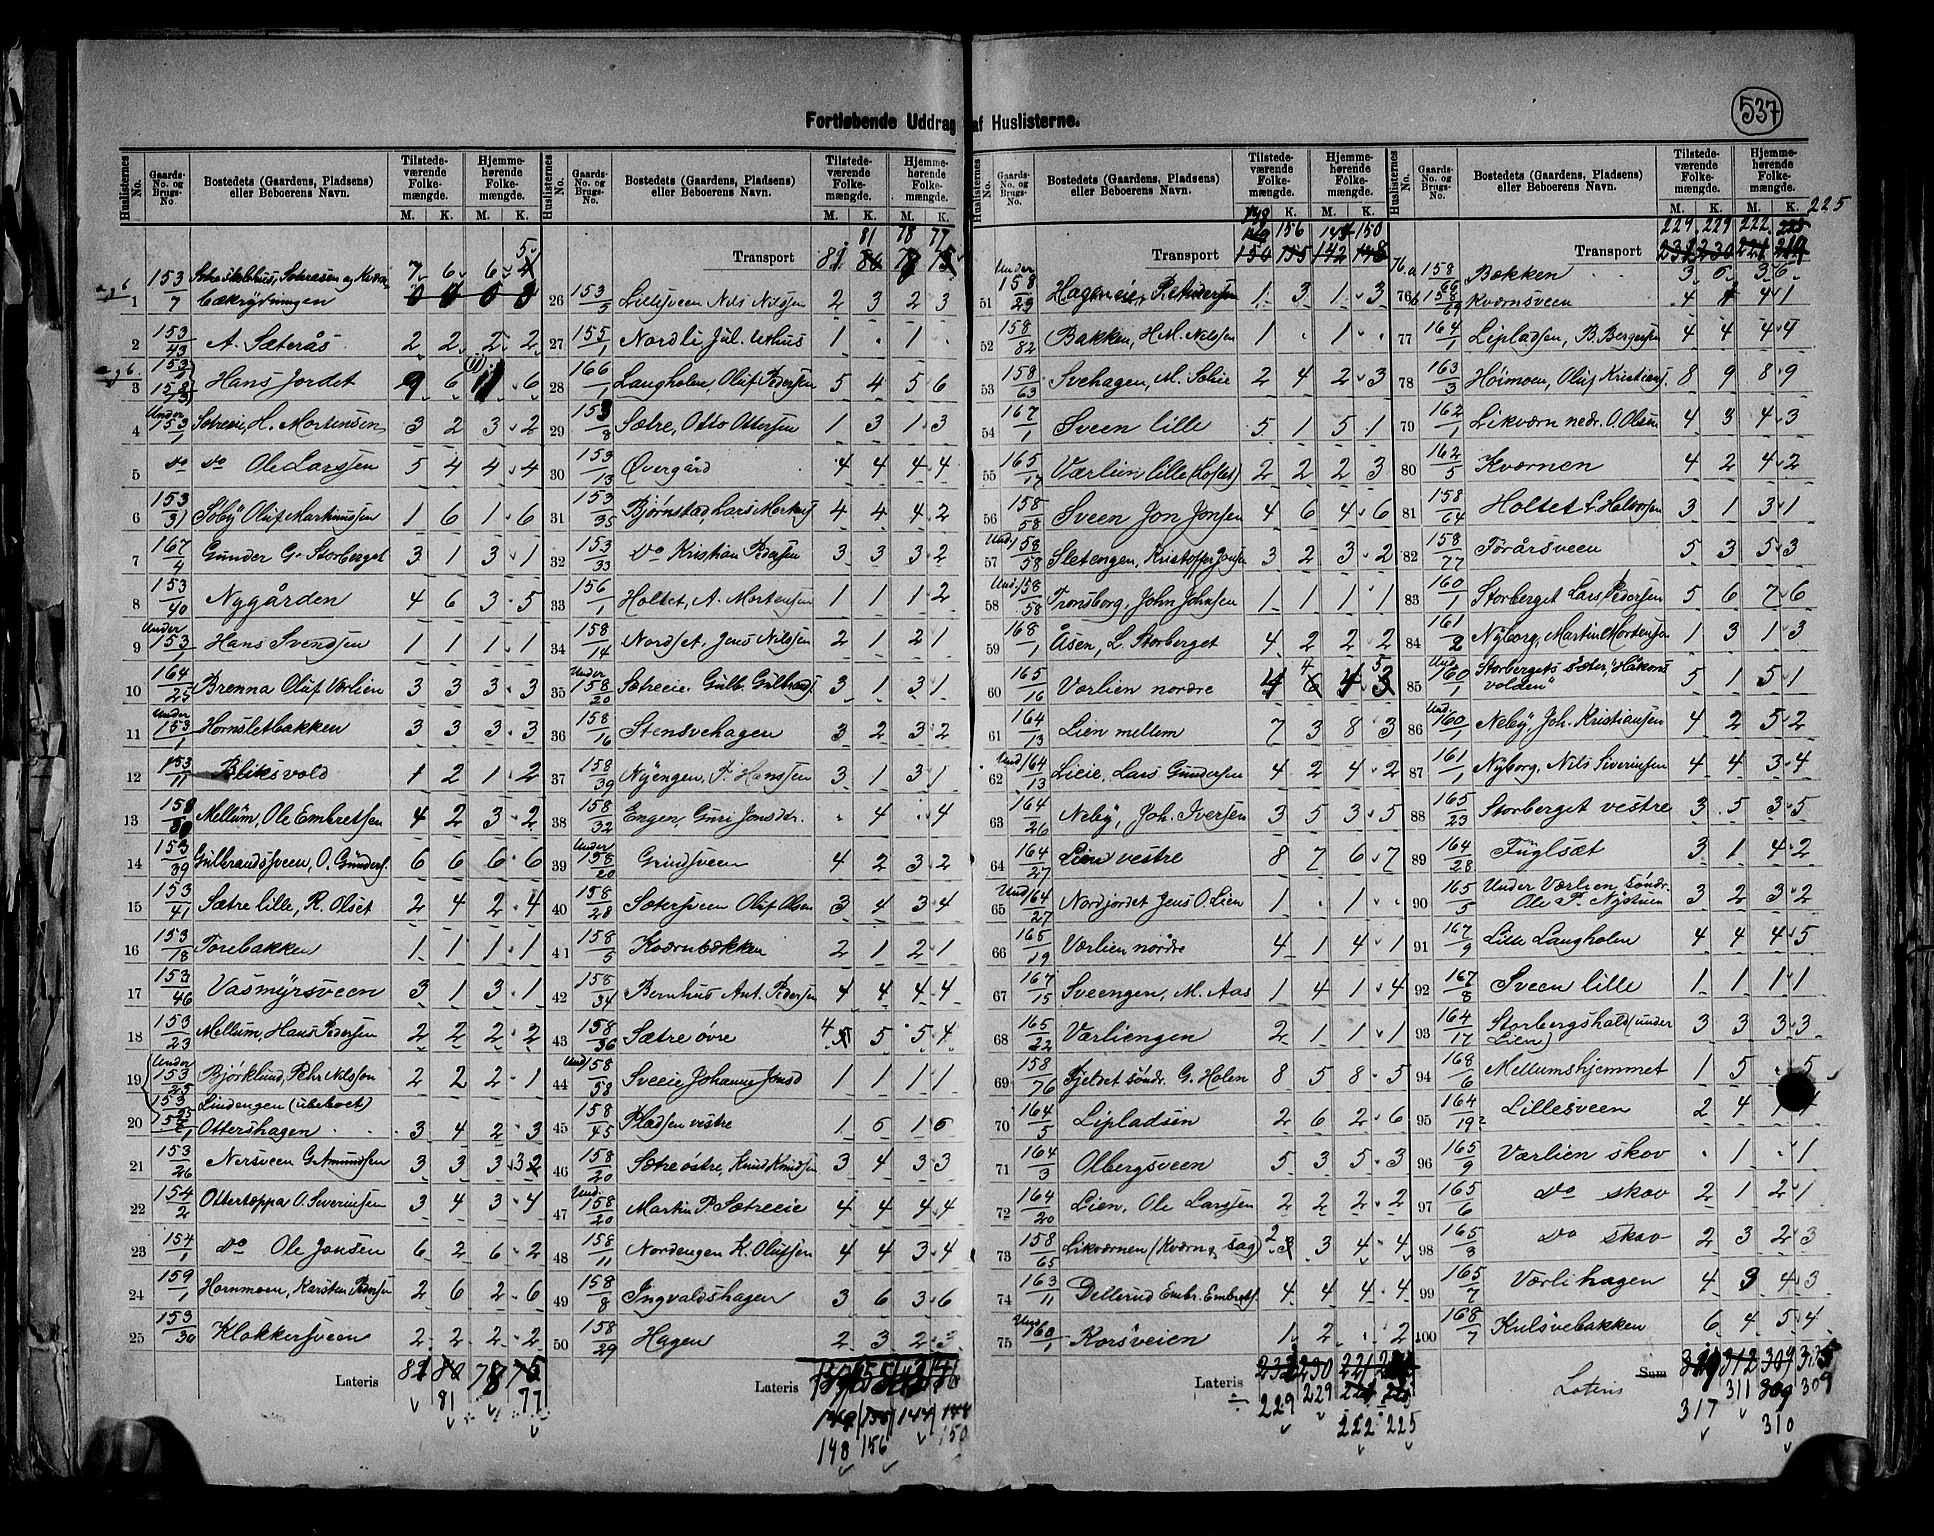 537
Fortløbende Uddrag af Huslisterne.
Huslisternes No. | Gaards-No. og Brugs-No. | Bostedets (Gaardens, Pladsens) eller Beboerens Navn. | Tilstedeværende Folkemængde. M. K. | Hjemmehørende Folkemængde. M. K.
1 153/7 Bækrydningen
2 153/43 A. Sæterås 2 2 2 2
3 Hans Jordet 9 6 11 6
4 Under 153/1 Sætreeie, H. Mortensen 3 2 3 2
5 do do Ole Larssen 5 4 4 4
6 153/31 Søby Oluf Martinussen 1 6 1 6
7 167/4 Gunder G. Storberget 3 1 3 1
8 153/40 Nygården 4 6 3 5
9 Under 153/1 Hans Svendsen 1 1 1 1
10 164/25 Brenna Oluf Værlien 3 3 3 3
11 Under 153/1 Hornsletbakken 3 3 3 3
12 153/11 Bliksvold 1 2 1 2
13 Mellum, Ole Embretsen 4 2 3 2
14 153/39 Gulbrandssveen, O. Gunders. 6 6 6 6
15 153/41 Sætre lille, R. Olset 2 4 2 4
16 153/18 Torebakken 1 1 1 1
17 153/46 Vasmyrsveen 3 1 3 1
18 153/23 Mellum, Hans Pedersen 2 2 2 2
19 Under 153/25 Bjørklund, Pehr Nilsson 2 2 2 1
Lindengen (ubeboet)
20 Ottershagen 3 4 2 3
21 153/26 Nersveen G. Amundsen 3 3 3 2
22 154/2 Ottertøppa O. Severinsen 3 4 3 4
23 154/1 do Ole Jonsen 6 2 6 2
24 159/1 Hornmoen, Karsten Pedersen 2 6 2 6
25 153/30 Klokkersveen 2 2 2 2
Lateris 81 78 77
Transport 81 81 78 77
26 153/5 Lillesveen Nils Nilssen 2 3 2 3
27 155/1 Nordli, Jul. Uthus 1 . 1 .
28 166/1 Langholen, Oluf Pedersen 5 4 5 6
29 153/8 Sætre, Otto Ottersen 1 3 1 3
30 153/13 Øvergård 4 4 4 4
31 153/35 Bjørnstad, Lars Markus 4 4 4 2
32 153/33 do Kristian Pedersen 3 3 3 2
33 156/1 Holtet, A. Mortensen 1 1 1 2
34 158/14 Nordset, Jens Nilssen 2 1 2 1
35 Under 158/20 Sætreeie, Gulb. Gulbrands. 3 1 3 1
36 158/16 Stensvehagen 3 2 3 2
37 158/39 Nyengen, P. Hanssen 3 1 3 1
38 158/32 Engen, Guri Jonsdr. . 4 . 4
39 Under 158/20 Grindsveen 4 2 3 2
40 158/28 Sætersveen Oluf Olsen 3 4 3 4
41 158/5 Kværnbækken 2 1 2 1
42 158/34 Bernhus Ant. Pedersen 4 4 4 4
43 158/36 Sætre øvre 4 5 5 4
44 Und. 158/58 Sveeie Johanne Jonsd 1 1 1 1
45 158/45 Pladsen vestre 1 6 1 6
46 158/20 Sætre østre, Knud Knudsen 3 4 3 3
47 Und. 158/20 Martin P. Sætreeie 4 4 4 4
48 158/11 Nordengen K. Olufsen 4 4 3 4
49 158/8 Ingvaldshagen 3 6 3 6
50 158/29 Hagen 2 3 2 3
Lateris
148 156 147 150
Transport 156 150
51 Under 158/29 Hageneie, P. Andersen 1 3 1 3
52 158/82 Bakken, H. M. Nilssen 1 . 1 .
53 158/63 Svehagen, M. Solie 2 4 2 3
54 167/1 Sveen lille 5 1 5 1
55 165/17 Værlien lille 2 2 2 3
56 158/58 Sveen Jon Jonsen 4 6 4 6
57 Und. 158/58 Sletengen, Kristoffer Jonsen 3 2 3 2
58 Und. 158/58 Tronsborg, John Johnsen 1 1 1 1
59 168/1 Åsen, L. Storberget 4 2 2 2
60 165/16 Værlien nordre
61 164/13 Lien mellem 7 3 8 3
62 Und 164/13 Lieie, Lars Gundersen 4 2 4 2
63 164/26 Neby, Joh. Iversen 3 5 3 5
64 164/27 Lien vestre 8 7 6 7
65 Und 164/27 Nordjordet Jens O. Lien 1 . 1 .
66 165/19 Værlien nordre 4 1 4 1
67 167/15 Sveengen, M. Aas 1 4 1 4
68 165/22 Værliengen 2 1 1 1
69 158/76 Fjeldet søndr. G. Holen 8 5 8 5
70 164/5 Lipladsen 2 6 2 6
71 164/3 Olbergsveen 5 3 5 3
72 164/20 Lien, Ole Larssen 2 2 2 2
73 158/65 Likværnen (Kværn & sag) 2 3 4 4
74 163/11 Dellerud Embr. Embrets. 4 4 4 4
75 Und. 160/1 Korsveien 1 2 . 2
Lateris
229 229 222 225
Transport 229 229 222 225
76a 158/66 Bakken 3 6 3 6
76b 158/69 Kværnsveen 4 1 4 1
77 164/1 Lipladsen, B. Bergersen 4 4 4 4
78 163/3 Høimoen, Oluf Kristians. 8 9 8 9
79 162/1 Likværn nedr. O. Olsen 4 3 4 3
80 162/5 Kværnen 4 2 4 2
81 158/64 Holtet L. Halvorsen 3 1 3 1
82 158/77 Torårsveen 5 3 5 3
83 160/1 Storberget Lars Pedersen 5 6 7 6
84 161/2 Nyborg, Martin Mortensen 1 3 1 3
85 Und. 160/1 Storbergets sæter, "Håkonsvolden" 5 1 5 1
86 Und. 160/1 Neby, Joh. Kristiansen 4 2 5 2
87 161/1 Nyborg, Nils Siverinsen 4 4 3 4
88 165/23 Storberget vestre 3 5 3 5
89 164/28 Fuglsæt 3 1 4 2
90 165/5 Under Værlien, søndr. Ole P. Nystuen 3 2 3 2
91 167/9 Lille Langholen 4 4 4 5
92 167/8 Sveen lille 1 1 1 1
93 164/17 Storbergshald (under Lien) 3 3 3 3
94 168/6 Mellumshjemmet 1 5 . 5
95 164/19 Lillesveen 2 4 1 4
96 165/9 Værlien skov . 1 . 1
97 165/6 do skov 2 1 2 1
98 165/3 do skov 2 3 2 3
99 165/7 Værlihagen 4 3 4 3
100 168/7 Kulsvebakken 6 4 5 4
Sum
Lateris 317 311 310 309